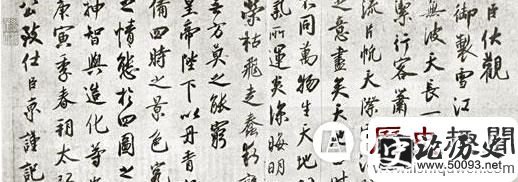 臣伏觀
御製雪江
無波天長一
潔行客蕭
流片帆天際
之意盡矣天地
不同萬物生天地
氣所運炎涼晦明
榮枯飛走蠢動
方莫之能窮
帝陛下以丹青
備四時之景色究
之情態於四圖之
神智與造化等
庚寅季春朔太
公致仕臣京謹記
歷史趣聞
www.50093.net